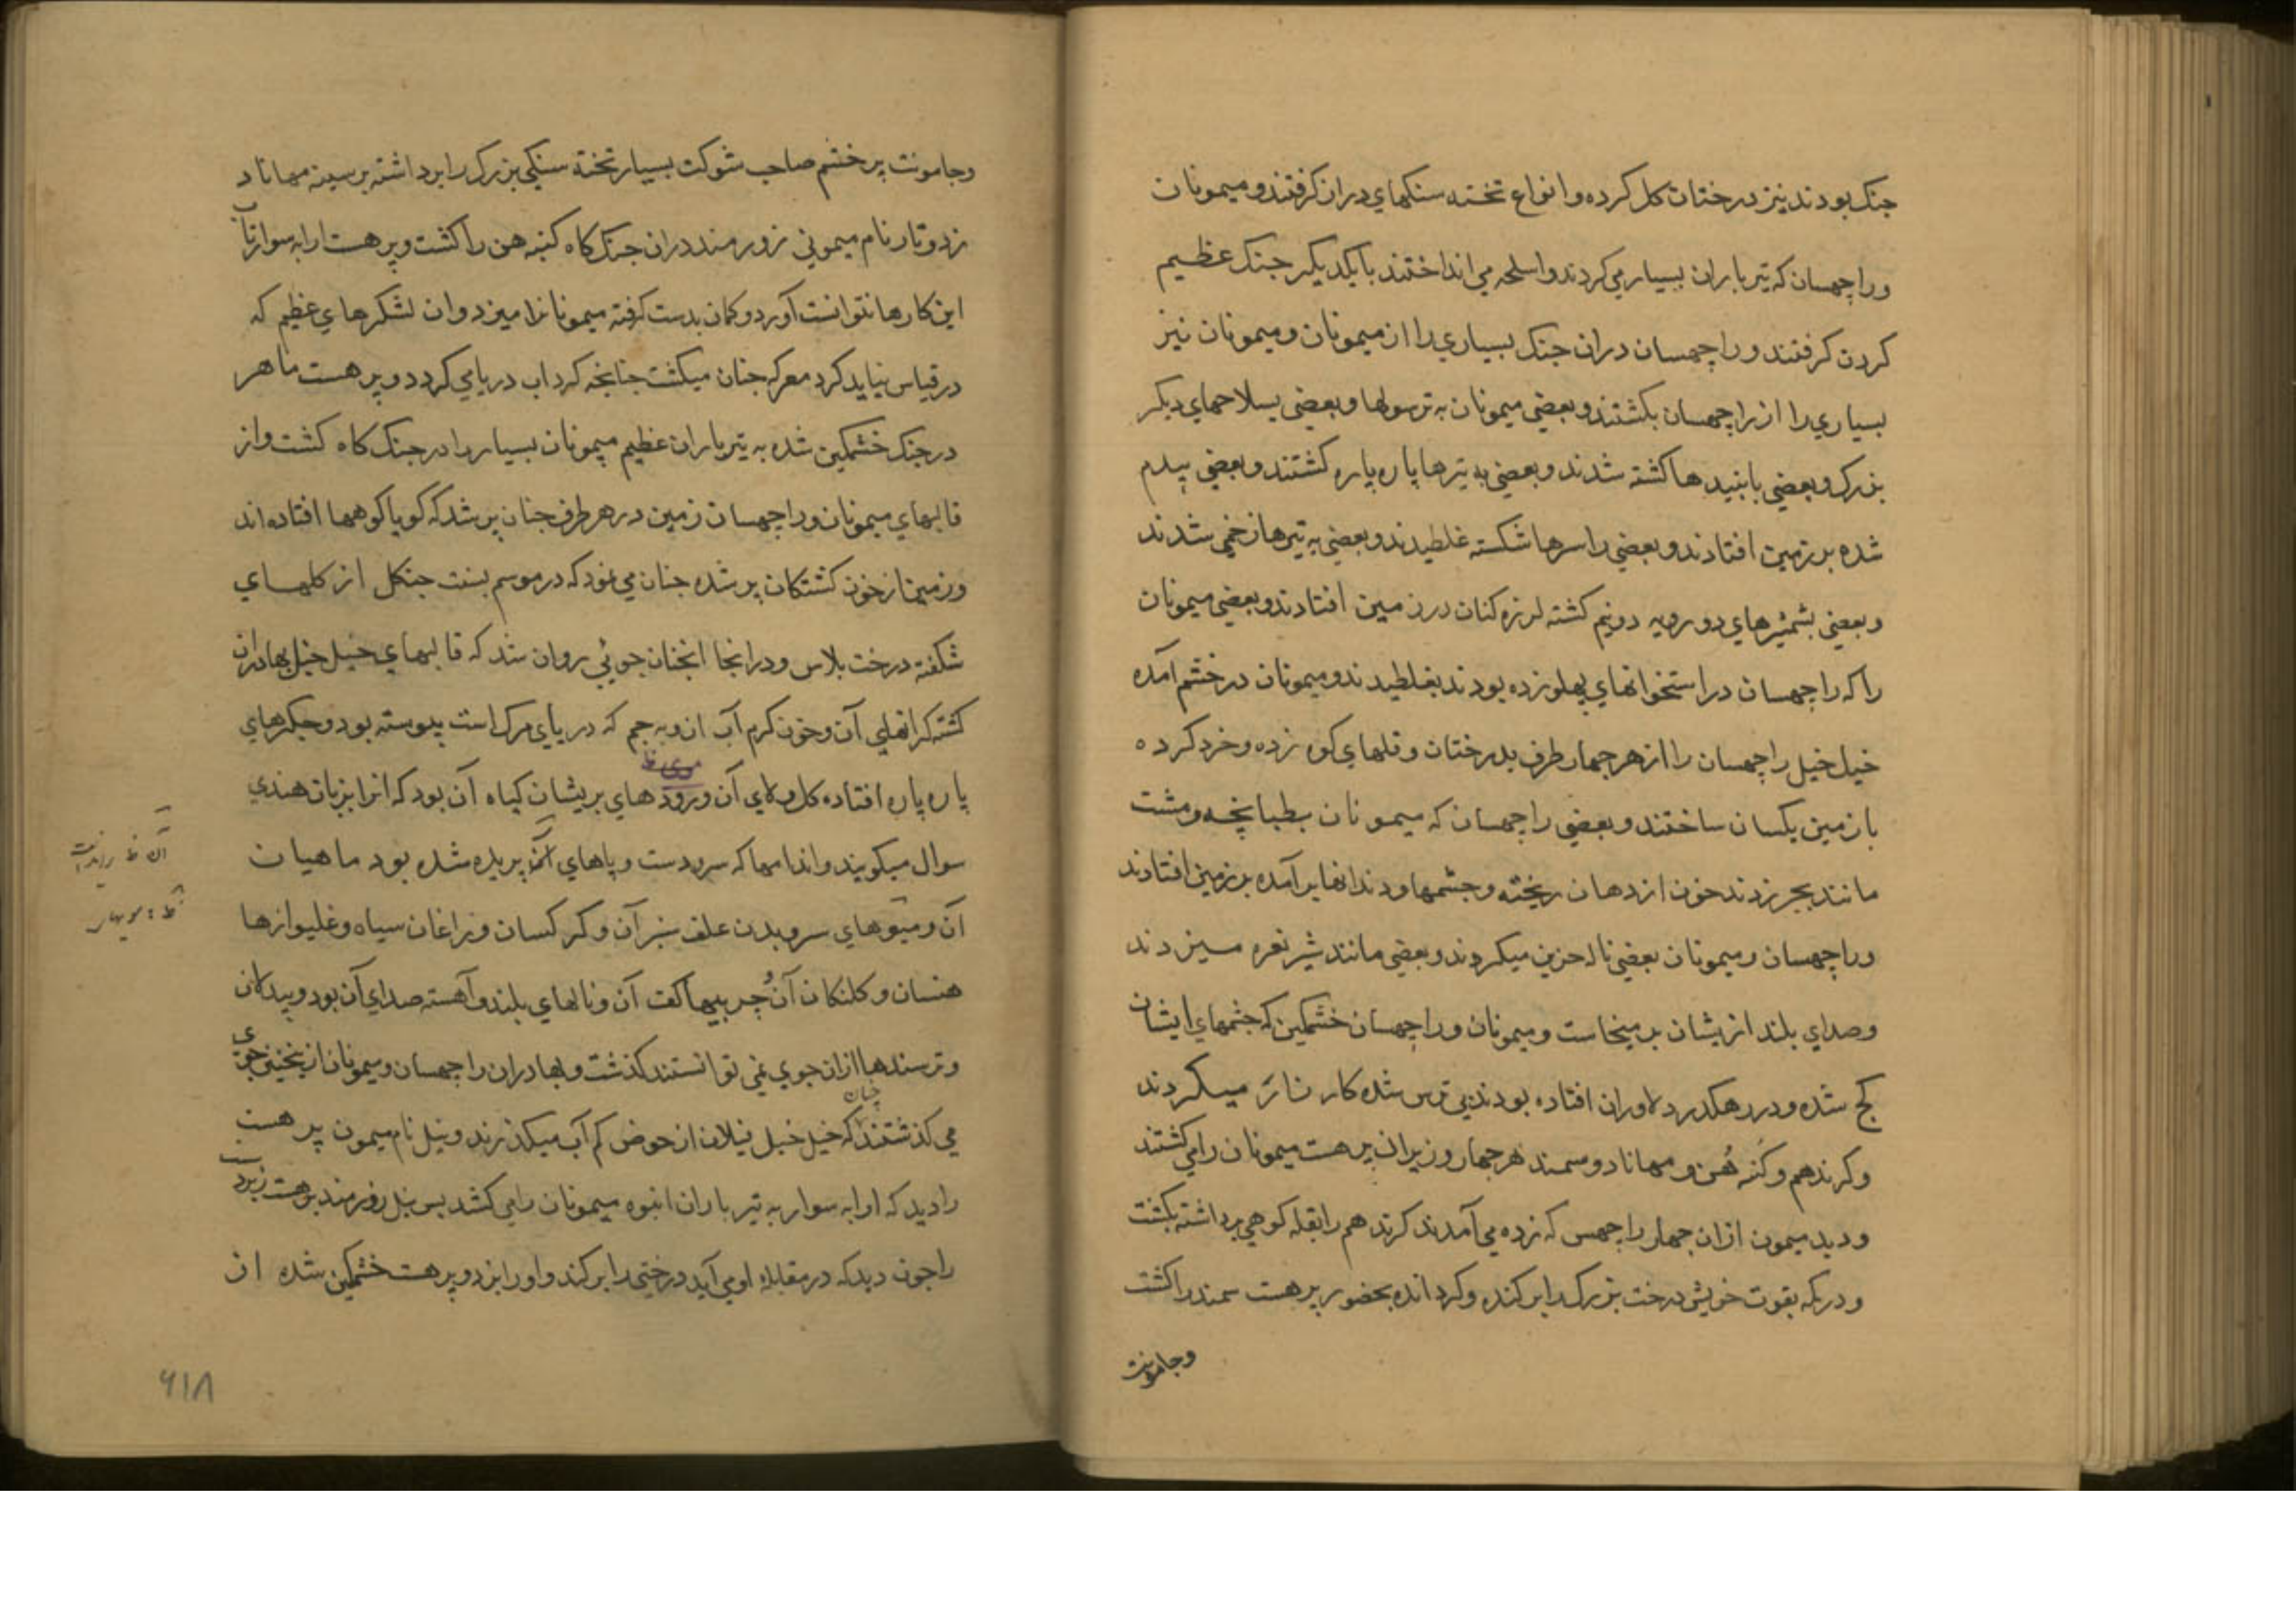 جنک بودند نیز درختات کل کرده و انواع تخته سنکهای دران کرفتند و میمونان
و راچهسان که تیر باران بسیار می کردند و اسلحه می انداختند با یکدیکر جنک عظیم
کردن کرفتند و راچهسان دران جنک بسیاری را از میمونان و میمونان نیز
بسیاری را از راچهسان بکشتند و بعضی میمونان به ترسولها و بعضی بسلاحهای دیکر
بزرک و بعضی با بنیدها کشته شدند و بعضی به تیرها پاره پاره کشتند و بعضی بیدم
شده بر زمین افتادند و بعضی را سرها شکسته غلطیدند و بعضی به تیرها زخمی شدند
و بعضی بشمشیرهای دو رویه دونیم کشته لرزه کنان در زمین افتادند و بعضی میمونان
را که راچهسان در استخوانهای پهلو زده بودند بغلطیدند و میمونان در خشم آمده
خیل خیل راچهسان را از هر چهار طرف بدرختان و قلهای کوه زده و خرد کرده
با زمین یکسان ساختند و بعضی راچهسان که میمونان بطبانچه و مشت
مانند بجر زدند خون از دهان ریخته و چشمها و دندانها بر آمده بر زمین افتادند
و راچهسان و میمونان بعضی ناله حزین میکردند و بعضی مانند شیر نعره میزدند
و صدای بلند ازیشان بر میخاست و میمونان و راچهسان خشمکین که چشمهای ایشان
کج شده و در رهکذر دلاوران افتاده بودند بی ترس شده کار زار میکردند
و کرندهم و کنبه هن و مهاناد و سمند هر چهار وزیران پرهست میمونان را می کشتند
و دبد میمون ازان چهار راچهس که زده می آمدند کرندهم را بقله کوهی برداشته بکشت
و درمکه بقوت خویش درخت بزرک را بر کنده و کردانده بحضور پرهست سمند را کشت
وجامونت
وجامونت پر خشم صاحب شوکت بسیار تخته سنکی بزرک را برداشته بر سینه مهاناد
زد و تار نام میمونی زورمند دران جنک کاه کنبه هن را کشت و پرهست ارابه سوار تاب
این کارها نتوانست آورد و کمان بدست کرفته میمونانرا میزد و ان لشکرهای عظیم که
در قیاس نیاید کرد معرکه چنان میکشت چنانچه کرداب دریا می کردد و پرهست ماهر
در جنک خشمکین شده به تیر باران عظیم میمونان بسیار را در جنک کاه کشت و از
قالبهای میمونان و راچهسان زمین در هر طرف چنان پر شد که کویا کوهها افتاده اند
و زمین از خون کشتکان پر شده چنان می نمود که در موسم بسنت جنکل از کلهای
شکفته درخت بلاس و در انجا انچنان جوئی روان شد که قالبهای خیل خیل بهادران
کشته کرانهای آن و خون کرم آب ان و به جم که دریای مرک است پیوسته بود و جکرهای
پاره پاره افتاده کل و لای آن و رودهای پریشان کیاه آن بود که انرا بزبان هندی
سوال میکویند و اندامها که سر و دست و پاهای بریده شده بود ماهیان
آن و میوهای سر و بدن علف سبز آن و کرکسان و زاغان سیاه و غلیوازها
هنسان و کلنکان آن و چربیها کف آن و نالهای بلند و آهسته صدای آن بود و بیدلان
و ترسندها ازان جوی نمی توانستند کذشت و بهادران راچهسان و میمونان ازین چنین جوی
می کذشتند چنان که خیل خیل فیلان از حوض کم آب میکذرند و نیل نام میمون پرهست
را دید که ارابه سوار به تیر باران انبوه میمونان را می کشد پس نیل زورمند پرهست
را چون دید که در مقابله او می آید درختی را بر کند و او را بزد و پرهست خشمکین شده از
۶۱۸